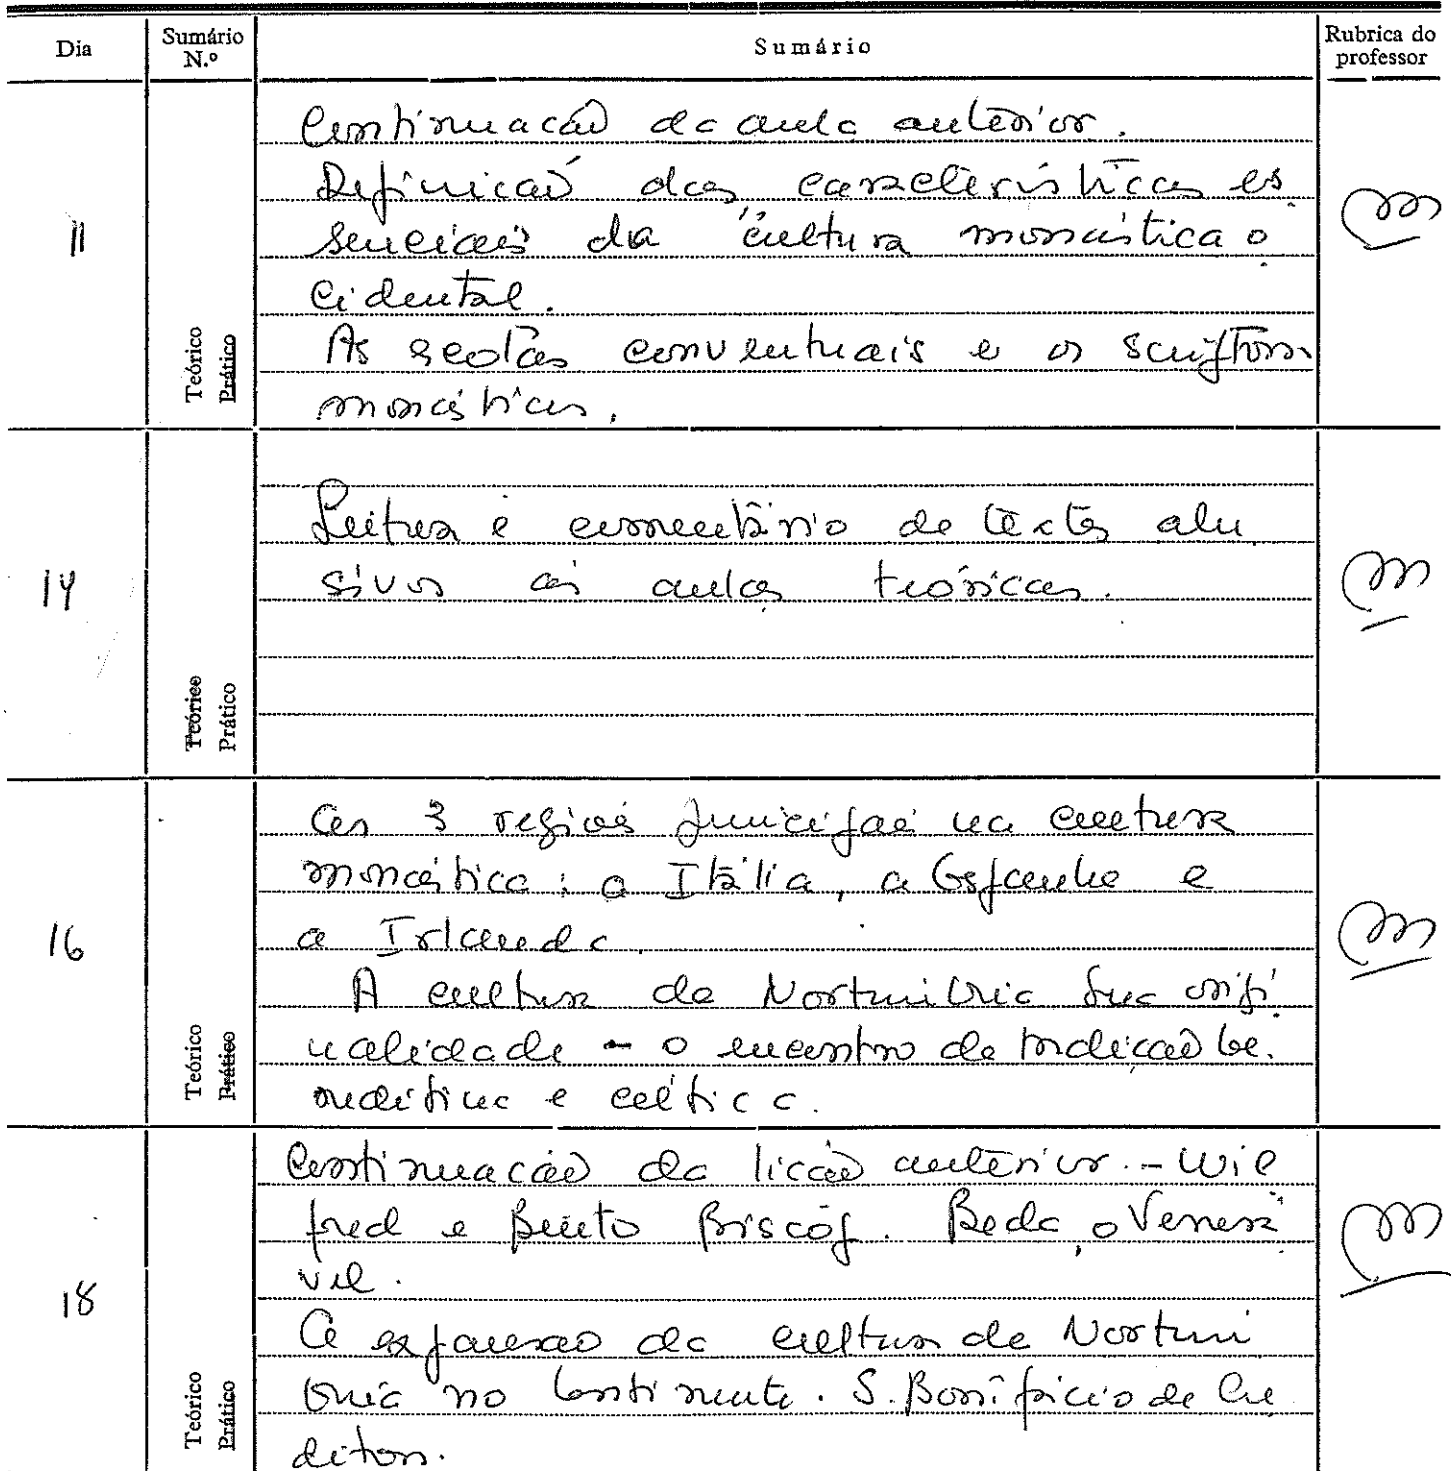 Dia Sumário N.º Sumário Rubrica do professor
11
Teórico
Prático
Continuação da aula anterior.
Definição das características es
senciais da cultura monástica o
cidental.
As escolas conventuais e os scriptoria
monásticos.
14
Teórico
Prático
Leitura e comentário de textos alu
sivos às aulas teóricas.
16
Teórico
Prático
As 3 regiões principais na cultura
monástica: a Itália, a Espanha e
a Irlanda.
A cultura da Nortumbria sua origi
nalidade - o encontro da tradição be
neditina e céltica.
18
Teórico
Prático
Continuação da lição anterior. - Wil
fred e Bento Biscop. Beda, o Venerá
vel.
A expansão da cultura da Nortum
bria no Continente. S. Bonifácio de Cre
diton.